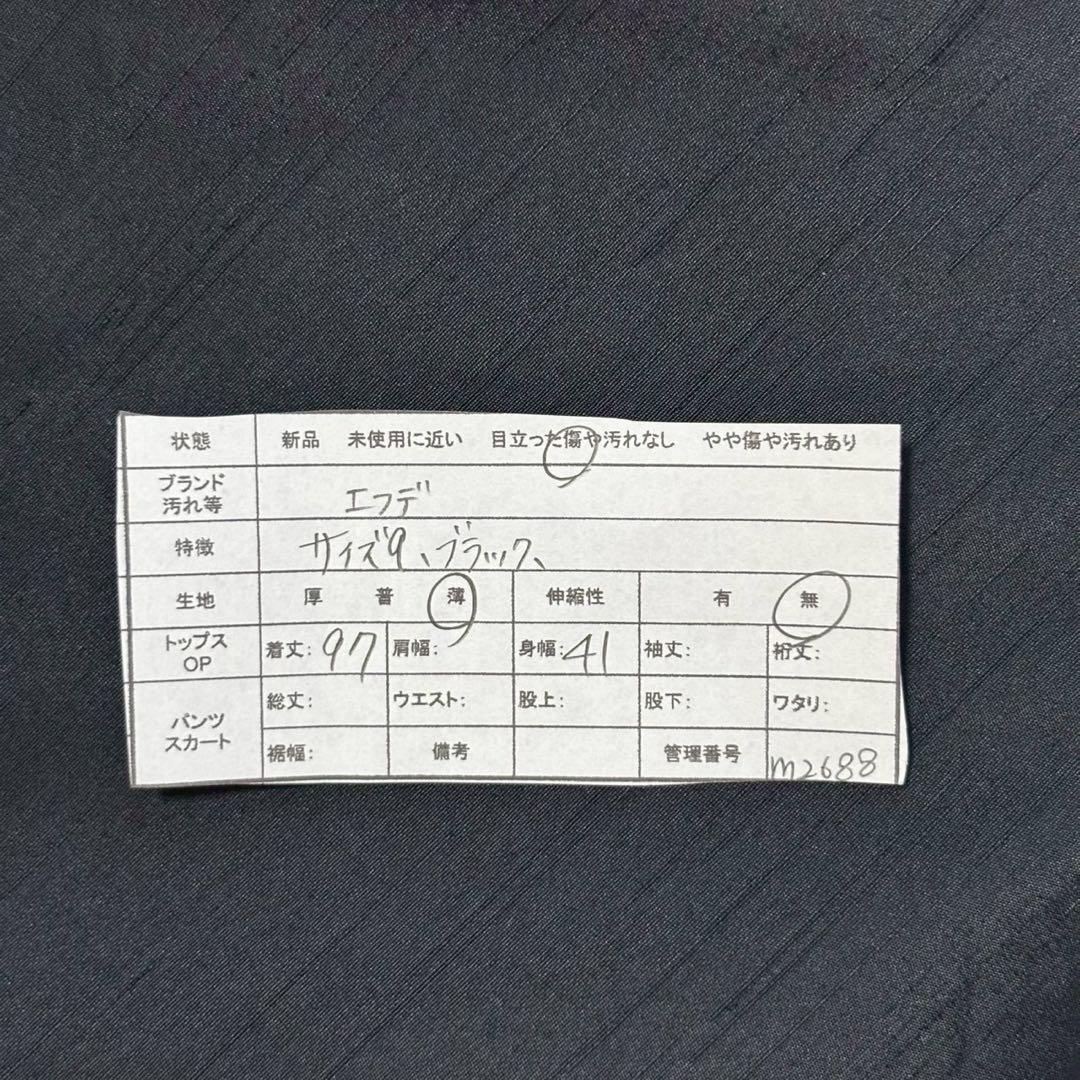 状態 新品 未使用に近い 目立った傷や汚れなし やや傷や汚れあり
ブランド
汚れ等 エフデ
特徴 サイズ9、ブラック、
生地 厚 普 薄 伸縮性 有 無
トップス
OP 着丈: 97 肩幅: 身幅: 41 袖丈: 裄丈:
パンツ
スカート 総丈: ウエスト: 股上: 股下: ワタリ:
裾幅: 備考 管理番号 m2688